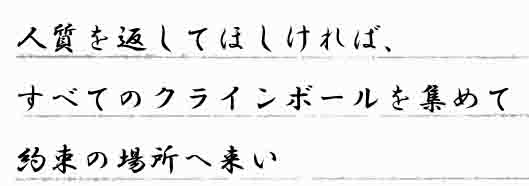 人質を返してほしければ、
すべてのクラインボールを集めて
約束の場所へ来い